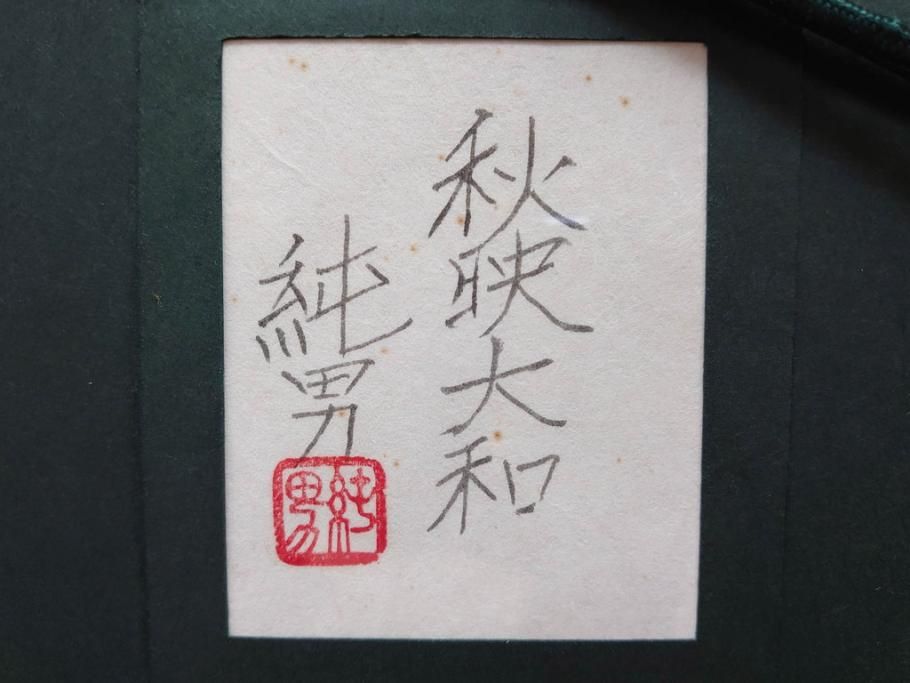 秋映大和
純男
純男